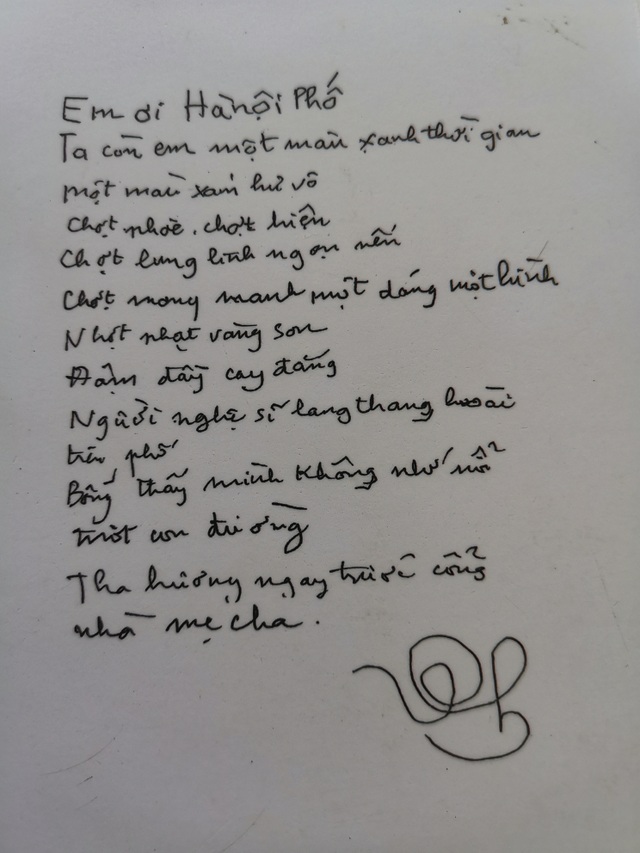 Em ơi Hà Nội Phố
Ta còn em một màu xanh thời gian
một màu xám hư vô
Chợt nhòe, chợt hiện
Chợt lung linh ngọn nến
Chợt mong manh một dáng một hình
Nhợt nhạt vàng son
Đậm đầy cay đắng
Người nghệ sĩ lang thang hoài
trên phố
Bỗng thấy mình không nhớ nổi
một con đường
Tha hương ngay trước cổng
nhà mẹ cha.